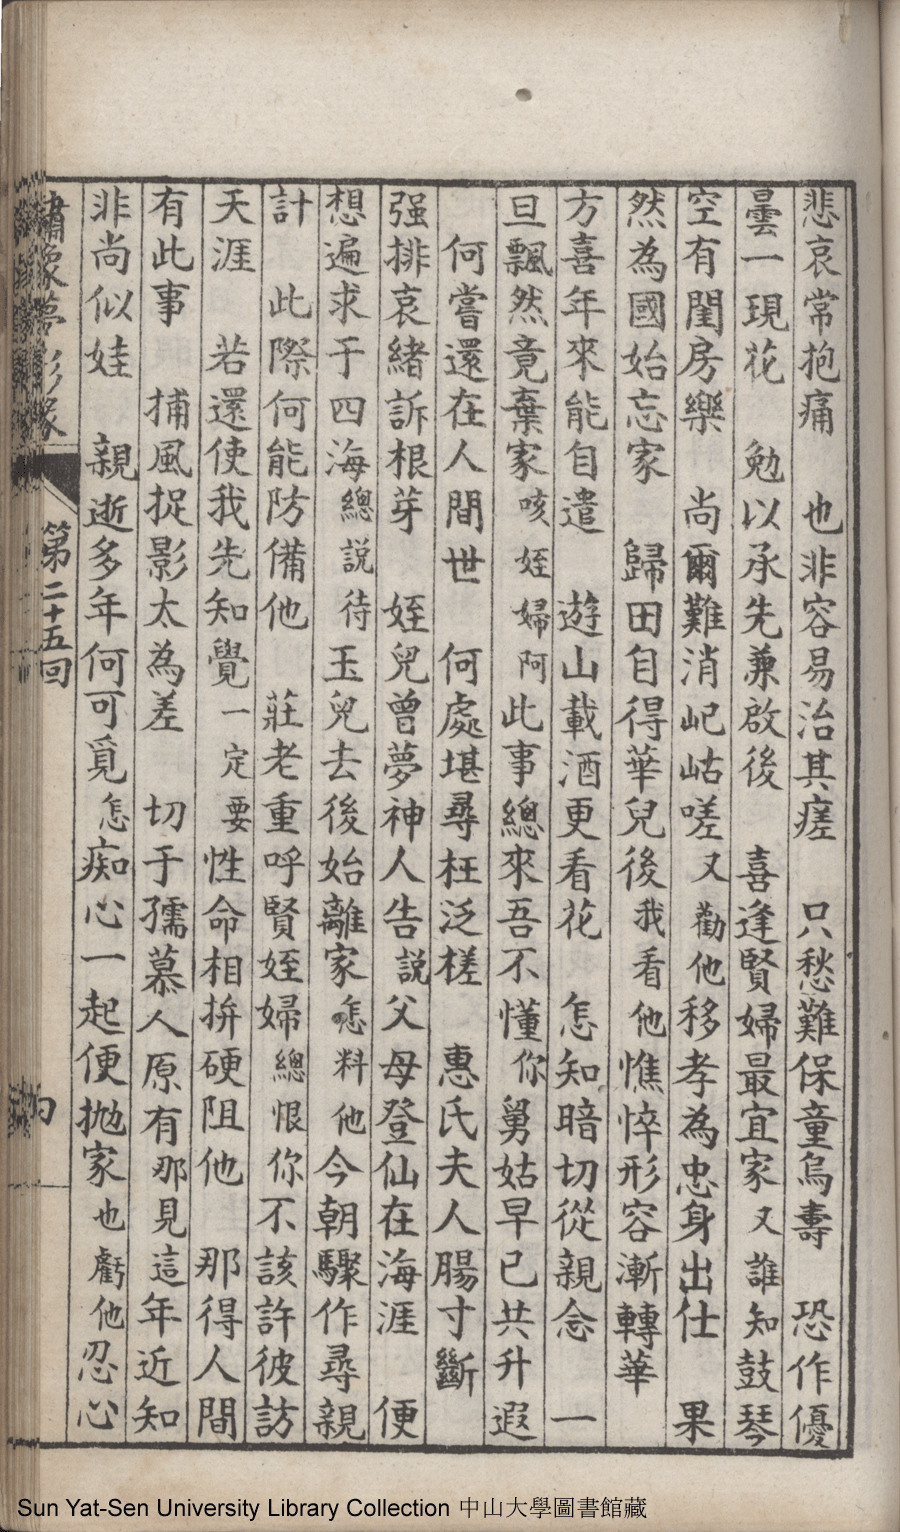 悲哀常抱痛　也非容易治其瘥　只愁難保童烏壽　恐作優
曇一現花　勉以承先兼啟後　喜逢賢婦最宜家　又誰知鼓琴
空有閨房樂　尚爾難消屺岵嗟　又勸他移孝為忠身出仕　果
然為國始忘家　歸田自得華兒後　我看他憔悴形容漸轉華
方喜年來能自遣　遊山載酒更看花　怎知暗切從親念　一
旦飄然竟棄家　咳姪婦阿此事總來吾不懂　你舅姑早已共升遐
何嘗還在人間世　何處堪尋枉泛槎　惠氏夫人腸寸斷
强排哀緒訴根芽　姪兒曾夢神人告　說父母登仙在海涯　便
想遍求于四海　總說待玉兒去後始離家　怎料他今朝驟作尋親
計　此際何能防備他　莊老重呼賢姪婦　總恨你不該許彼訪
天涯　若還使我先知覺　一定要性命相拚硬阻他　那得人間
有此事　捕風捉影太為差　切于孺慕人原有　那見這年近知
非尚似娃　親逝多年何可覓　怎痴心一起便拋家　也虧他忍心
繡像夢影緣　第二十五回
Sun Yat-Sen University Library Collection 中山大學圖書館藏